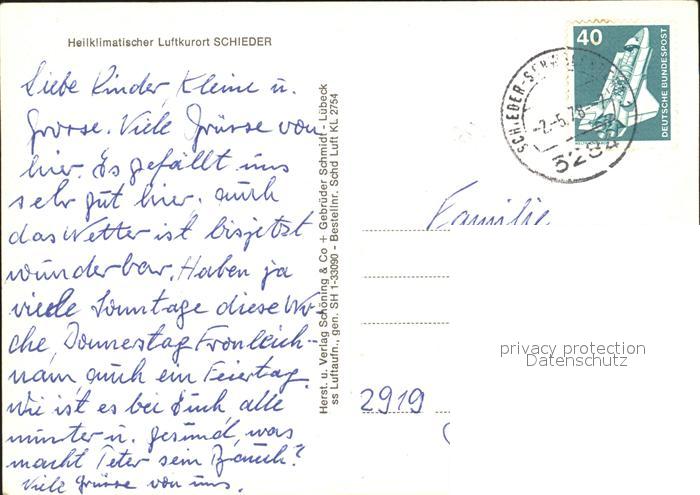 Heilklimatischer Luftkurort SCHIEDER
Liebe Kinder, Kleine u.
Grosse. Viele Grüsse von
hier. Es gefällt uns
sehr gut hier. auch
das Wetter ist bis jetzt
wunderbar. Haben ja
viele Sonntage diese Wo-
che, Donnerstag Fronleich-
nam, auch ein Feiertag.
Wie ist es bei Euch, alle
munter u. gesund, was
macht Peter sein Bauch?
Viele Grüsse von uns.
Herst. u. Verlag Schöning & Co + Gebrüder Schmidt - Lübeck
ss Luftaufn., gen. SH 1-33090 - Bestellnr. Schd Luft KL 2754
40
DEUTSCHE BUNDESPOST
SCHIEDER-SCH
3284
Familie
privacy protection
Datenschutz
2919